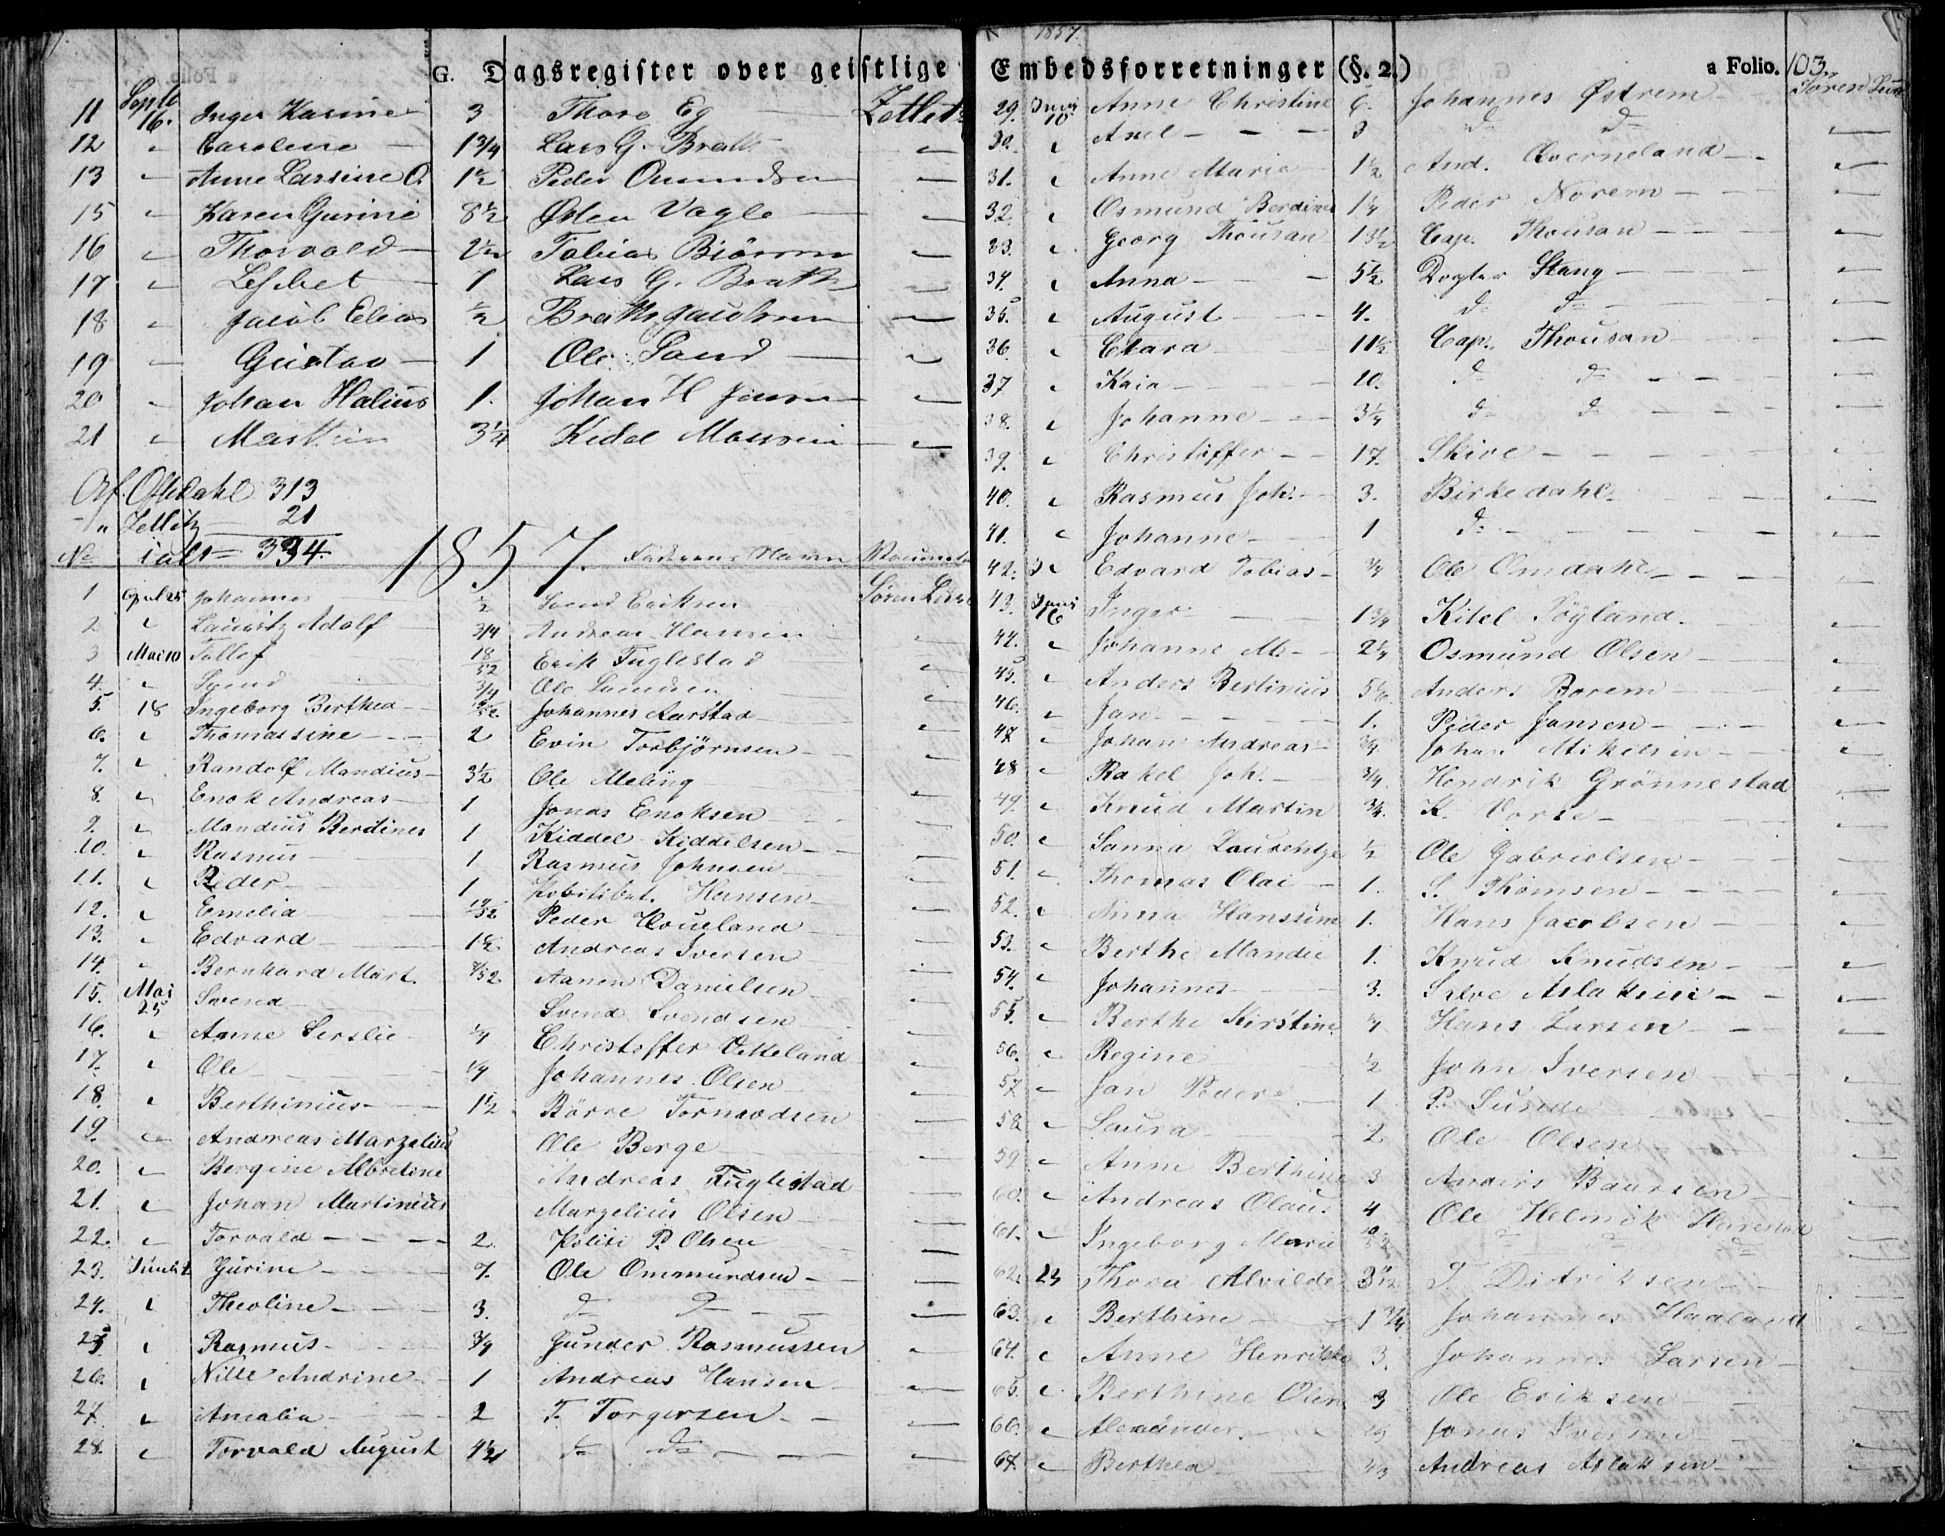 G. Dagsregister over geistlige
11 Sept 16. Inger Karine 3 Thore Eg Zetlitz
12 " Caroline 1 3/4 Lars G. Bratt "
13 " Anne Larsine O. 1 1/2 Peder Omundsen "
15 " Karen Gurine 8 1/2 Østen Vagle "
16 " Thorvald 2 1/2 Tobias "
17 " Lisbet 1 Lars G. Bratt "
18 " Jacob Elias 1/2 "
19 " Gustav 1 Ole Sand "
20 " Johan Halius 1. Johan H "
21 " 3 1/4 "
Af Oftedahl 313
" Zetlitz 21
No ialt = 334. 1857. Faderens Navn
1 April 25 Johannes 1/2 Svend Eriksen Søren
2 " Lauritz Adolf 3/4 Andreas Hansen "
3 Mai 10 Tollef 18/52 Erik Fuglestad "
4. " Svend 3/4 Ole "
5 18 Ingeborg Berthea Johannes Aarstad "
6. " Thomassine 2 Evin Torbjørnsen "
7. " Randolf Mandius 3 1/2 Ole Meling "
8. " Enok Andreas 1 Jonas Enoksen "
9. " Mandius Berdines 1 Kiddel Kiddelsen "
10. " Rasmus 1 Rasmus Johnsen "
11. " Peder 1 Politibet. Hansen "
12. " Emelia Peder Houeland "
13. " Edvard 1 1/2 Andreas Iversen "
14. " Bernhard Mart. Aanen Danielsen "
15. Mai 25 Svend Svend Svendsen "
16. " Anne Serslie 1/4 Christoffer "
17. " Ole 1/4 Johannes Olsen "
18. " Berthinius 1 1/2 Børre Tormodsen "
19. " Andreas Marzelius Ole Berge "
20. " Bergine Albretine Andreas Fuglestad "
21. " Johan Martinius Marzelius Olsen "
22. " Torvald 2. Politi P. Olsen "
23. Gurine 7. Ole Ommundsen "
24. " Theoline 3. do do "
25 " Rasmus 3/4 Gunder Rasmussen "
26. " Nille Andrine 1 Andreas Hansen "
27 " Amalia 2 T. Torgersen "
28. " Torvald August 4 1/2 do do "
1857.
Embedsforretninger (§. 2.) a Folio. 103.
29. Juni 10 Anne Christine 6. Johannes Østrem Søren
30. " Axel 3 do do "
31. " Anne Marie 1 1/2 And. Qverneland "
32. " Osmund Berdines 1 1/4 Peder Norem "
33. " Georg Thousan 13 1/2 Cap. Thousan "
34. " Anna 5 1/2 Dogter Stang "
35. " August 4. do do "
36. " Clara 11 1/2 Cap. Thousan "
37 " Kaia 10. do do "
38. " Johanne 3 1/4 do do "
39. " Christoffer 17. Skive "
40. " Rasmus Joh. 3. Birkedahl "
41. " Johanne 1 do "
42. Edvard Tobias 3/4 Ole Omdahl "
43. Juni 16 Inger 1 3/4 Kitel Tøyland. "
44. " Johanne M. 2 1/4 Osmund Olsen "
45. " Anders Bertinius Anders Borem "
46. " Jan 1. Peder Jansen "
47 " Johan Andreas 3/4 Johan Mikelsen "
48 " Rakel Joh. 3/4 Hendrik Grønnestad "
49. " Knud Martin 3/4. K. Vorse "
50. " Sanna Laurentze 1/2 Ole Gabrielsen "
51. " Thomas Olai 1. S. Thomsen "
52. " Anna Hanssine 1. Hans Jacobsen "
53. " Berthe Mandie 1. Knud Knudsen "
54. " Johannes 3. Salve Aslaksen "
55. " Berthe Kirstine Hans Larsen "
56. " Regine 1/2 John Iversen "
57 " Jan Peder 1 P. Sunde "
58 " Laura 2 Ole Olsen "
59 " Anne Berthine 3 Anders Baarsen "
60. " Andreas Olau. 4 Ole Helmik Harestad "
61. " Ingeborg Marie do do do "
62. 23 Thora Alvilde J. Ditriksen "
63. " Berthine 1 3/4 Johannes Haaland "
64. " Anne Henrikke 3. Johannes Larsen "
65. " Berthine 3 Ole Eriksen "
66. " Alexander Jonas Iversen "
67. " Berthea Andreas Aslaksen "